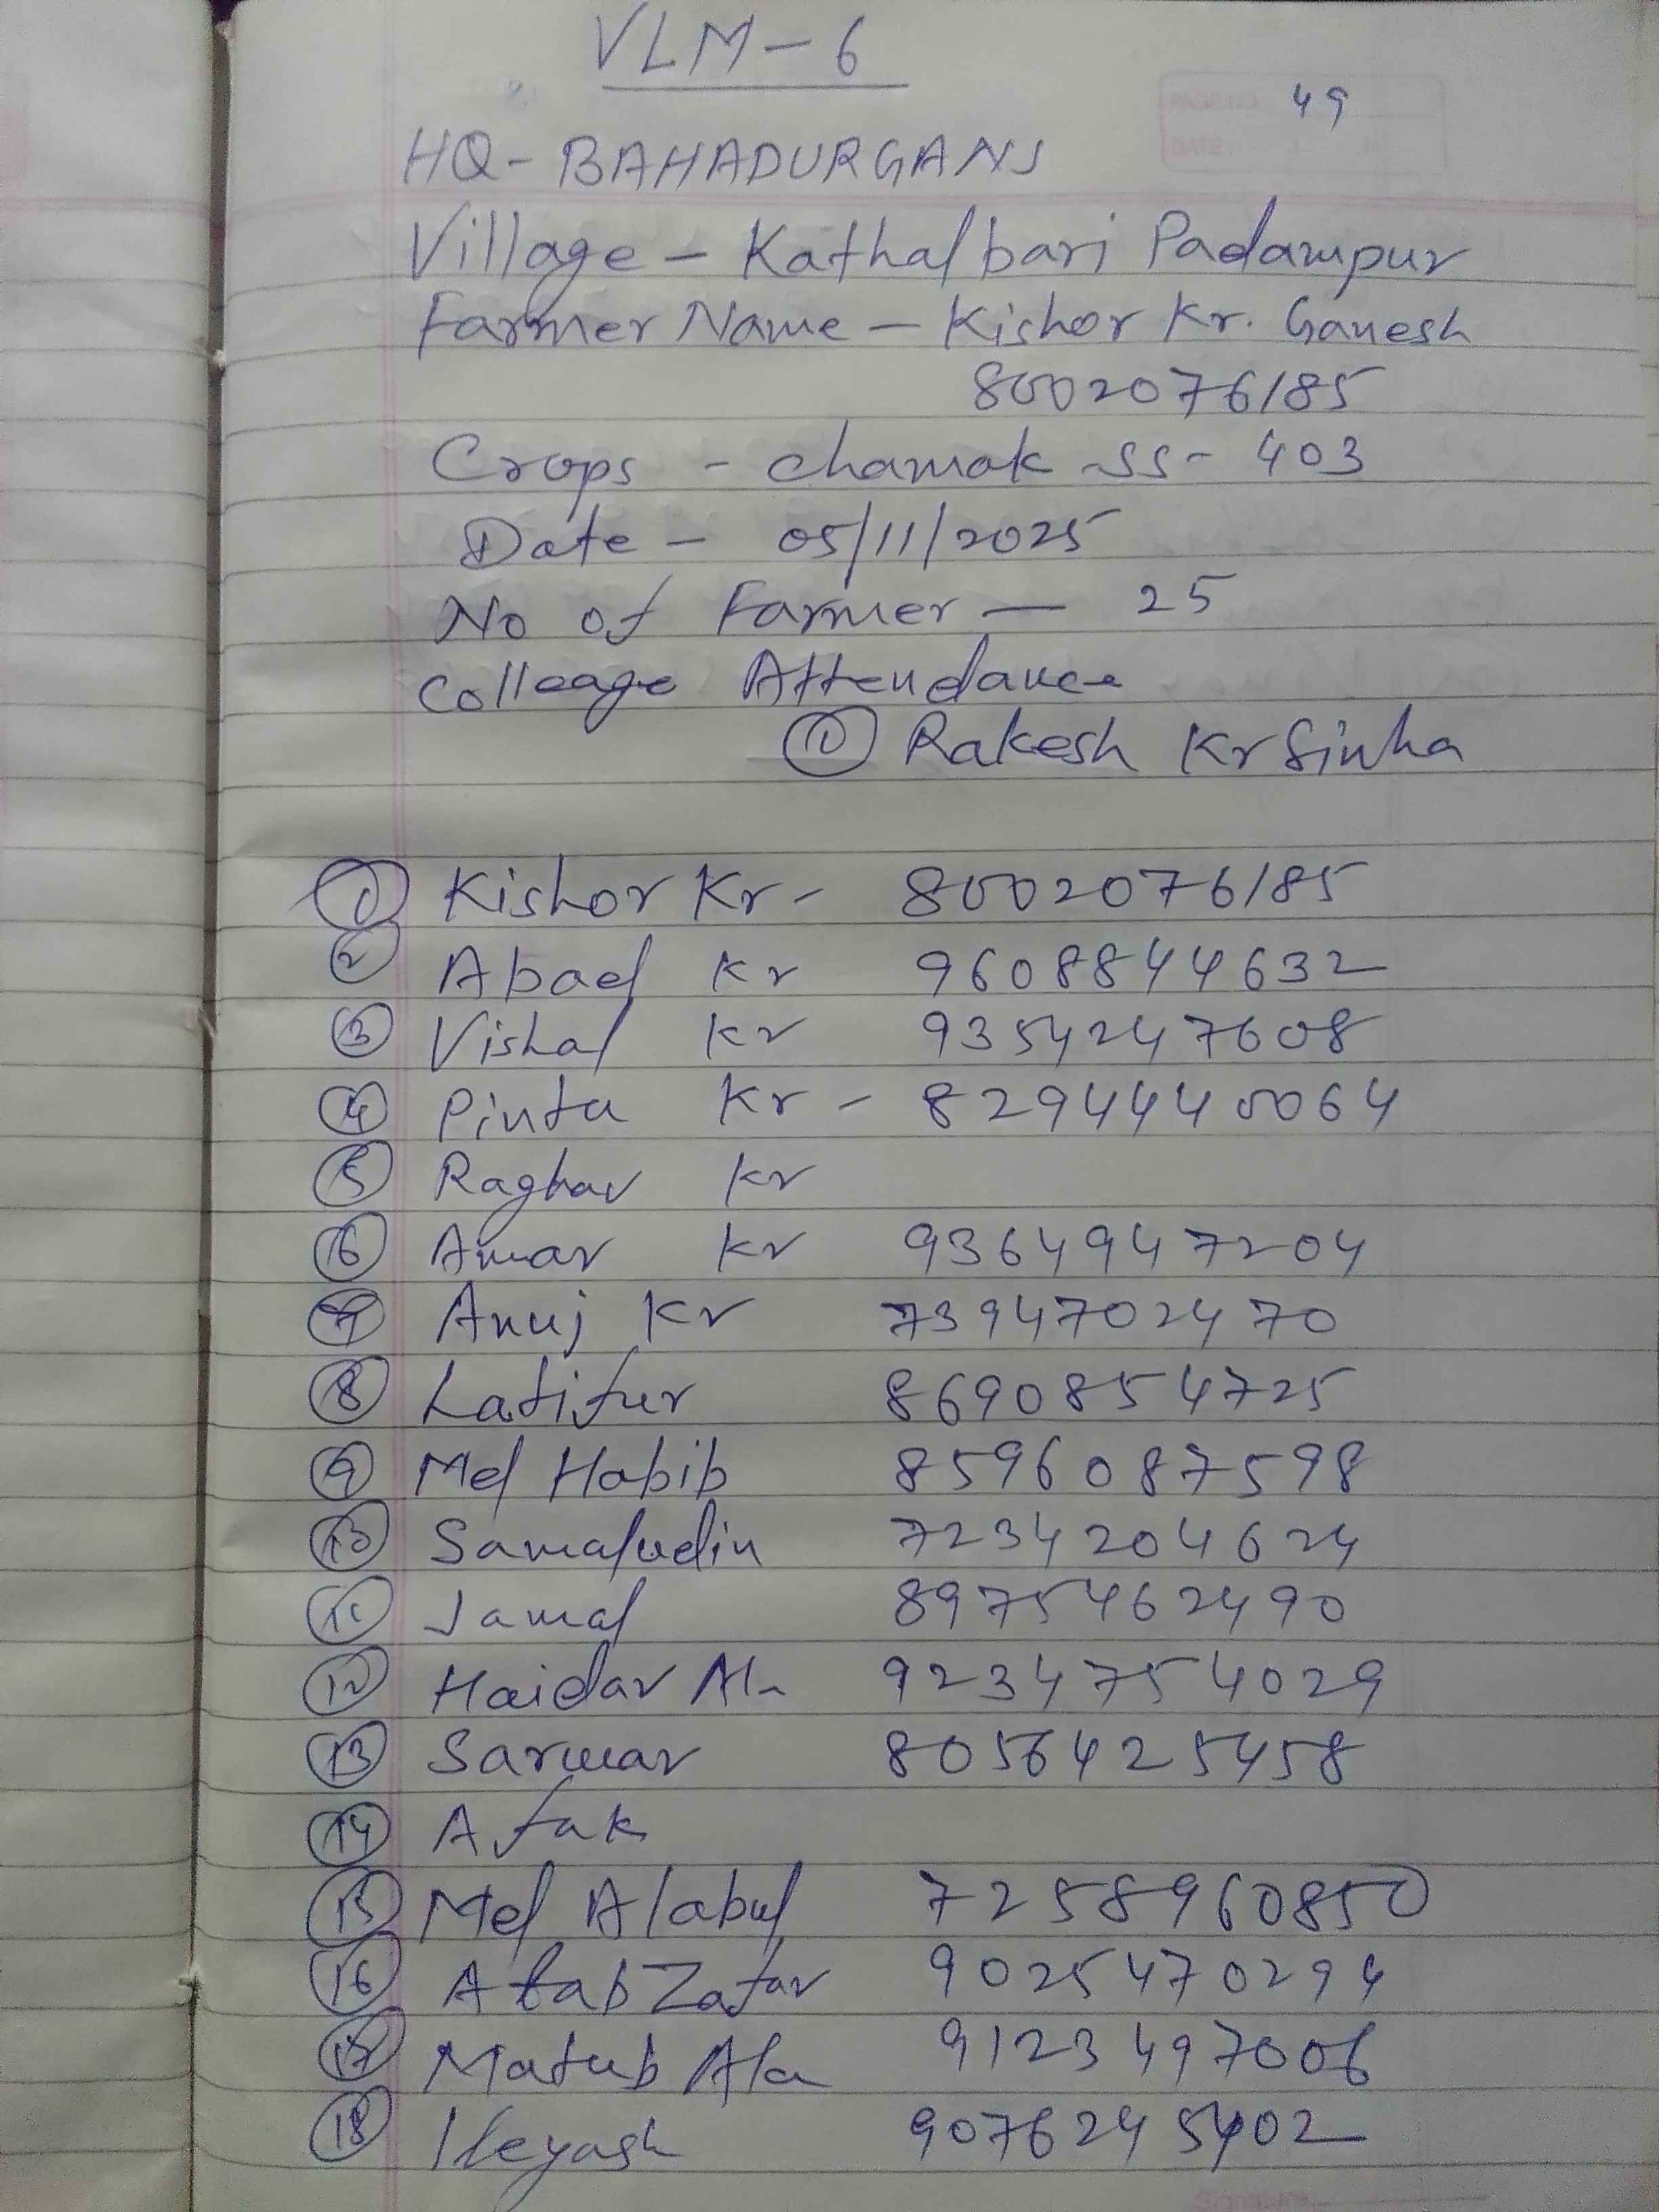 VLM-6
49
HQ- BAHADURGANJ
Village - Kathalbari Padampur
Farmer Name - Kishor Kr. Ganesh
8002076185
Crops - Chamak SS-403
Date - 05/11/2025
No of Farmer — 25
Colleage Attendance
① Rakesh Kr Sinha
① Kishor Kr - 8002076185
② Abad Kr 9608844632
③ Vishal Kr 9354247608
④ Pintu Kr - 8294440064
⑤ Raghav Kr
⑥ Amar Kr 9364947204
⑦ Anuj Kr 7394702470
⑧ Latifur 8690854725
⑨ Md Habib 8596087598
⑩ Samaludin 7234204624
⑪ Jamal 8975462490
⑫ Haidar Al 9234754029
⑬ Sarwar 8056425458
⑭ Afak
⑮ Md Alabul 7258960850
⑯ Afab Zafar 9025470294
⑰ Matub Ala 9123497006
⑱ Ileyash 9076245402